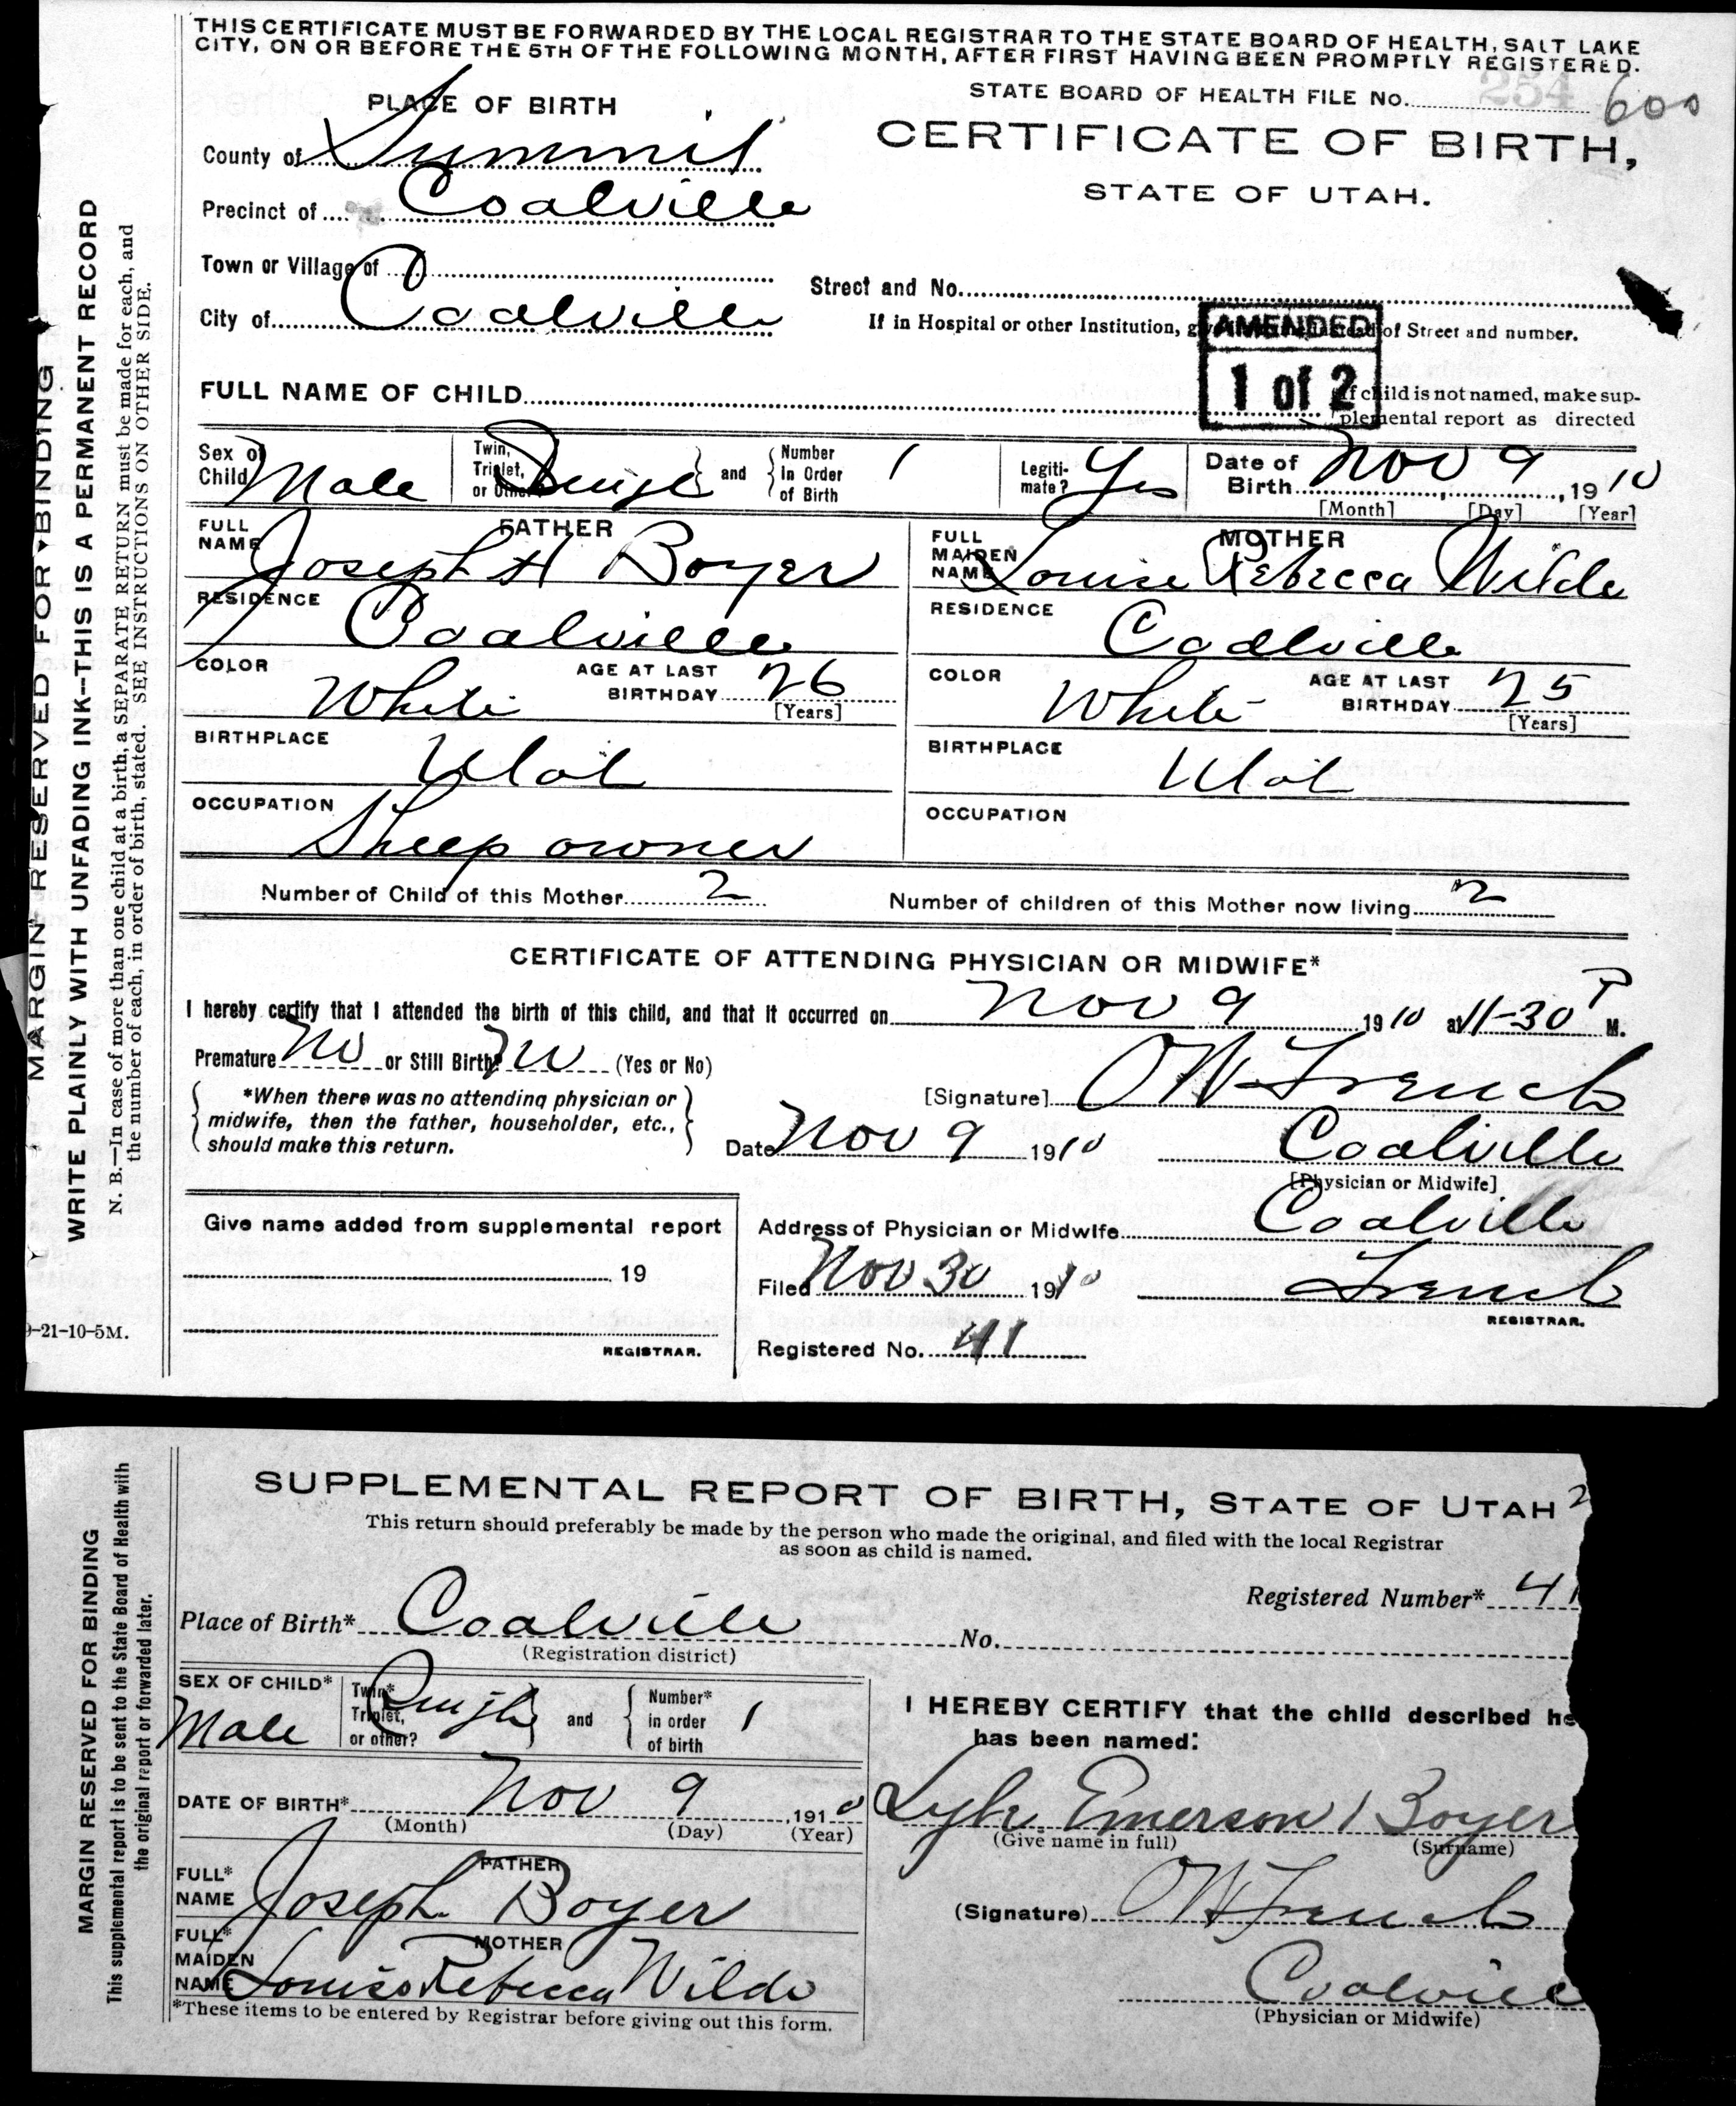 THIS CERTIFICATE MUST BE FORWARDED BY THE LOCAL REGISTRAR TO THE STATE BOARD OF HEALTH, SALT LAKE
CITY, ON OR BEFORE THE 5TH OF THE FOLLOWING MONTH, AFTER FIRST HAVING BEEN PROMPTLY REGISTERED.
PLACE OF BIRTH
STATE BOARD OF HEALTH FILE No. 254 600
County of Summit
CERTIFICATE OF BIRTH,
STATE OF UTAH.
Precinct of Coalville
Town or Village of
Street and No.
City of Coalville
If in Hospital or other Institution, of Street and number.
AMENDED
1 of 2
FULL NAME OF CHILD
If child is not named, make sup-
plemental report as directed
Sex of Child Male
Twin, Triplet, or Other? Single and Number in Order of Birth 1
Legiti-mate? Yes
Date of Birth Nov 9, 1910
[Month] [Day] [Year]
FATHER
FULL NAME Joseph H Boyer
MOTHER
FULL MAIDEN NAME Louise Rebecca Wilde
RESIDENCE Coalville
RESIDENCE Coalville
COLOR White AGE AT LAST BIRTHDAY 26 [Years]
COLOR White AGE AT LAST BIRTHDAY 25 [Years]
BIRTHPLACE Utah
BIRTHPLACE Utah
OCCUPATION Sheep owner
OCCUPATION
Number of Child of this Mother 2
Number of children of this Mother now living 2
CERTIFICATE OF ATTENDING PHYSICIAN OR MIDWIFE*
I hereby certify that I attended the birth of this child, and that it occurred on Nov 9 1910 at 11-30 P M.
Premature No or Still Birth? No (Yes or No)
*When there was no attending physician or
midwife, then the father, householder, etc.,
should make this return.
[Signature] OW French
Date Nov 9 1910
Coalville
[Physician or Midwife]
Give name added from supplemental report
19
REGISTRAR.
Address of Physician or Midwife Coalville
Filed Nov 30 1910 French
REGISTRAR.
Registered No. 41
MARGIN RESERVED FOR BINDING
WRITE PLAINLY WITH UNFADING INK—THIS IS A PERMANENT RECORD
N. B.—In case of more than one child at a birth, a SEPARATE RETURN must be made for each, and
the number of each, in order of birth, stated. SEE INSTRUCTIONS ON OTHER SIDE.
9-21-10-5M.
SUPPLEMENTAL REPORT OF BIRTH, STATE OF UTAH 2
This return should preferably be made by the person who made the original, and filed with the local Registrar
as soon as child is named.
Registered Number* 41
Place of Birth* Coalville No.
(Registration district)
SEX OF CHILD* Male
Twin* Triplet, or other? Single and Number* in order of birth 1
I HEREBY CERTIFY that the child described he
has been named:
DATE OF BIRTH* Nov 9, 1910
(Month) (Day) (Year)
Lyle Emerson / Boyer
(Give name in full) (Surname)
FATHER
FULL* NAME Joseph Boyer
(Signature) OW French
MOTHER
FULL* MAIDEN NAME Louise Rebecca Wilde
Coalville
(Physician or Midwife)
*These items to be entered by Registrar before giving out this form.
MARGIN RESERVED FOR BINDING
This supplemental report is to be sent to the State Board of Health with
the original report or forwarded later.